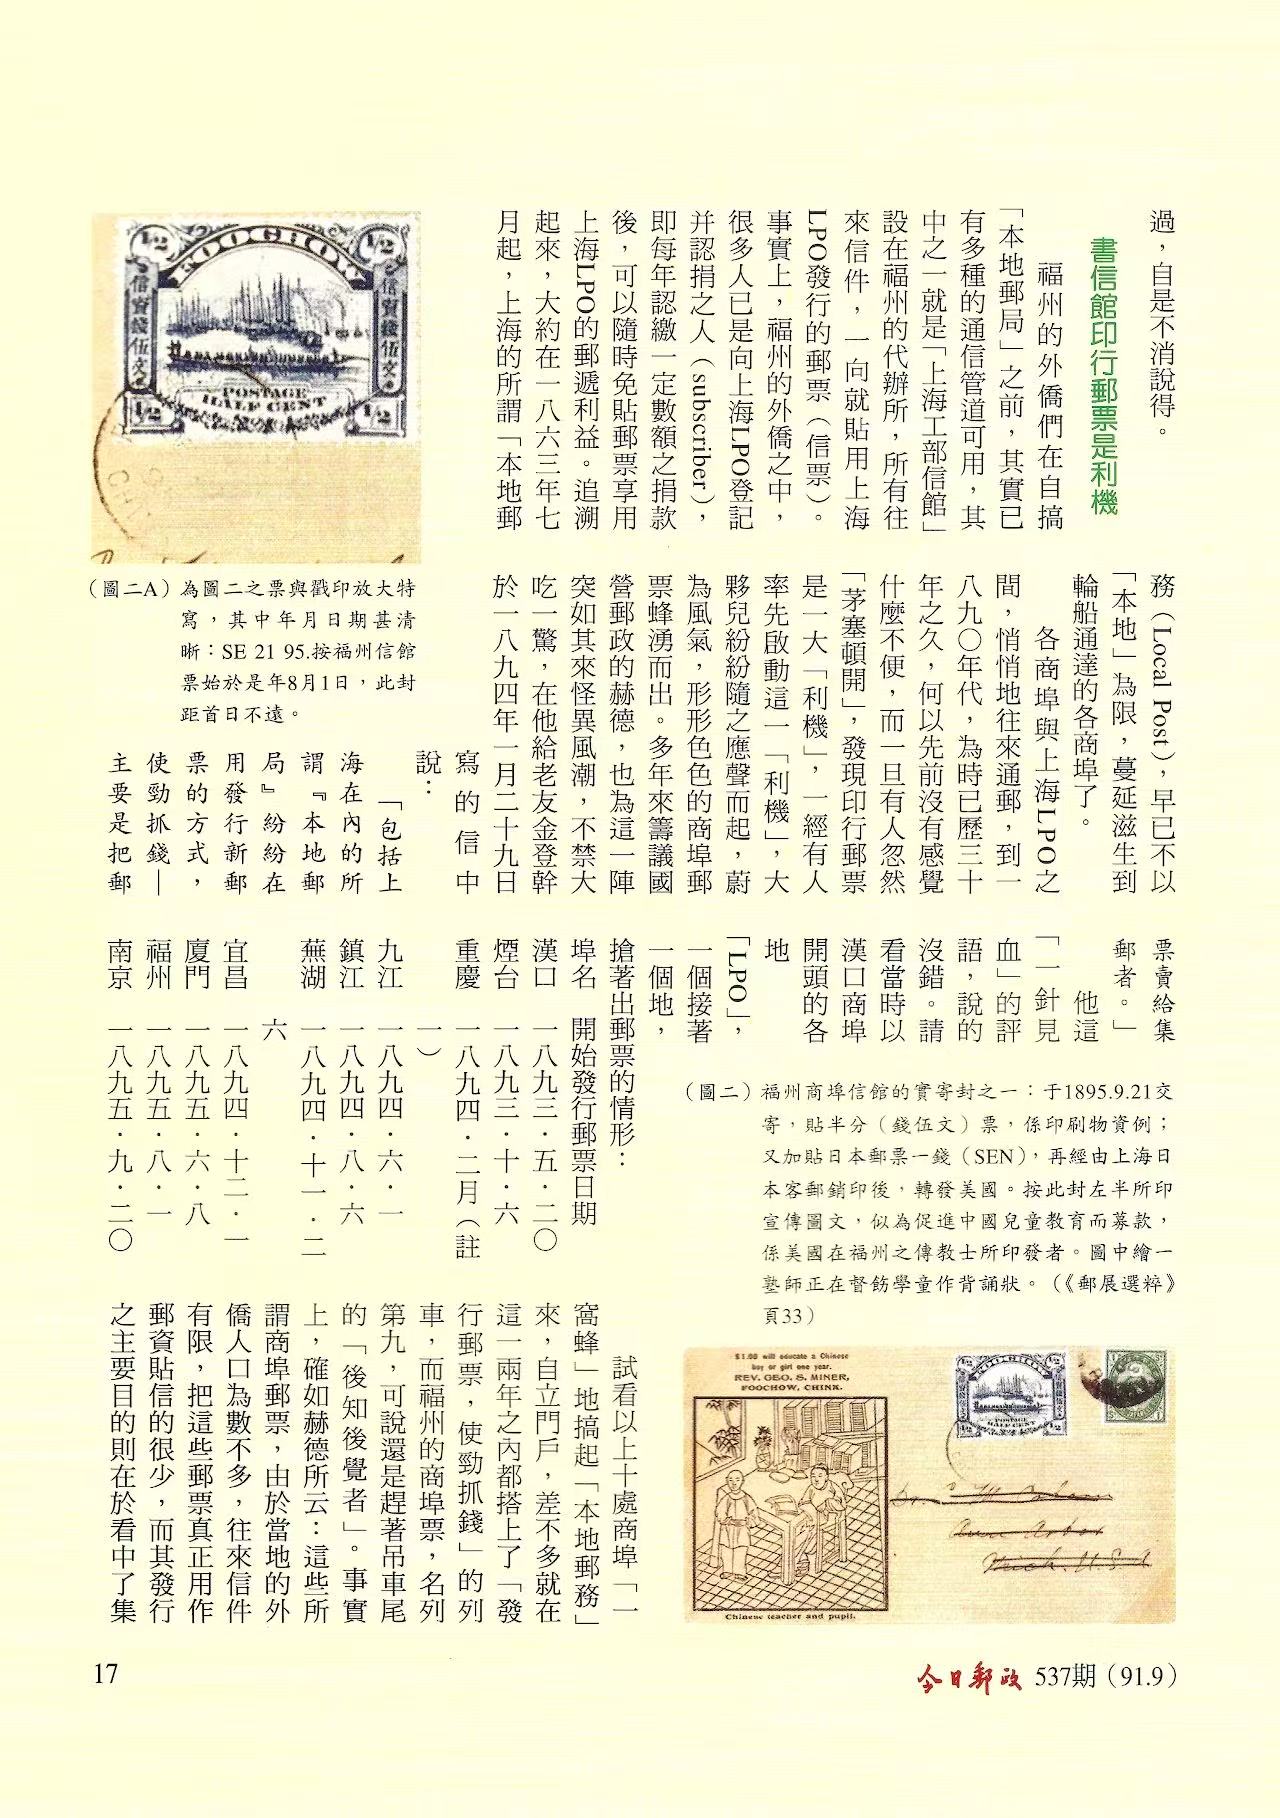 過，自是不消說得。
書信館印行郵票是利機
福州的外僑們在自搞
「本地郵局」之前，其實已
有多種的通信管道可用，其
中之一就是「上海工部信館」
設在福州的代辦所，所有往
來信件，一向就貼用上海
LPO發行的郵票（信票）。
事實上，福州的外僑之中，
很多人已是向上海LPO登記
并認捐之人（subscriber），
即每年認繳一定數額之捐款
後，可以隨時免貼郵票享用
上海LPO的郵遞利益。追溯
起來，大約在一八六三年七
月起，上海的所謂「本地郵
FOOCHOW
1/2
1/2
信資錢伍文
信資錢伍文
POSTAGE
HALF CENT
1/2
1/2
（圖二A）為圖二之票與戳印放大特
寫，其中年月日期甚清
晰：SE 21 95.按福州信館
票始於是年8月1日，此封
距首日不遠。
務（Local Post），早已不以
「本地」為限，蔓延滋生到
輪船通達的各商埠了。
各商埠與上海LPO之
間，悄悄地往來通郵，到一
八九〇年代，為時已歷三十
年之久，何以先前沒有感覺
什麼不便，而一旦有人忽然
「茅塞頓開」，發現印行郵票
是一大「利機」，一經有人
率先啟動這一「利機」，大
夥兒紛紛隨之應聲而起，蔚
為風氣，形形色色的商埠郵
票蜂湧而出。多年來籌議國
營郵政的赫德，也為這一陣
突如其來怪異風潮，不禁大
吃一驚，在他給老友金登幹
於一八九四年一月二十九日
寫的信中
說：
「包括上
海在內的所
謂『本地郵
局』紛紛在
用發行新郵
票的方式，
使勁抓錢—
主要是把郵
票賣給集
郵者。」
他這
「一針見
血」的評
語，說的
沒錯。請
看當時以
漢口商埠
開頭的各
地
「LPO」，
一個接著
一個地，
搶著出郵票的情形：
埠名 開始發行郵票日期
漢口 一八九三．五．二〇
煙台 一八九三．十．六
重慶 一八九四．二月（註
一）
九江 一八九四．六．一
鎮江 一八九四．八．六
蕪湖 一八九四．十一．二
六
宜昌 一八九四．十二．一
廈門 一八九五．六．八
福州 一八九五．八．一
南京 一八九五．九．二〇
（圖二）福州商埠信館的實寄封之一：于1895.9.21交
寄，貼半分（錢伍文）票，係印刷物資例；
又加貼日本郵票一錢（SEN），再經由上海日
本客郵銷印後，轉發美國。按此封左半所印
宣傳圖文，似為促進中國兒童教育而募款，
係美國在福州之傳教士所印發者。圖中繪一
塾師正在督飭學童作背誦狀。（《郵展選粹》
頁33）
$1.00 will educate a Chinese
boy or girl one year.
REV. GEO. S. MINER,
FOOCHOW, CHINA.
Chinese teacher and pupil.
1/2
1/2
POSTAGE
HALF CENT
Ann Arbor
Mich. U.S.A
試看以上十處商埠「一
窩蜂」地搞起「本地郵務」
來，自立門戶，差不多就在
這一兩年之內都搭上了「發
行郵票，使勁抓錢」的列
車，而福州的商埠票，名列
第九，可說還是趕著吊車尾
的「後知後覺者」。事實
上，確如赫德所云：這些所
謂商埠郵票，由於當地的外
僑人口為數不多，往來信件
有限，把這些郵票真正用作
郵資貼信的很少，而其發行
之主要目的則在於看中了集
17
今日郵政 537期（91.9）